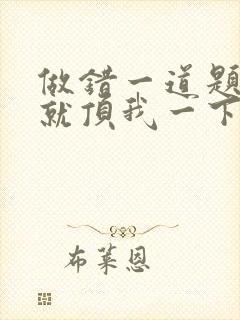 做錯一道題
就頂我一下
布萊恩